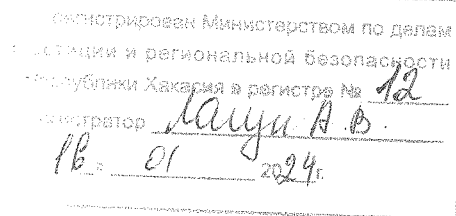 регистрирован Министерством по делам
юстиции и региональной безопасности
Республики Хакасия в регистре № 12
истратор Лащук А.В.
16 " 01 2024г.